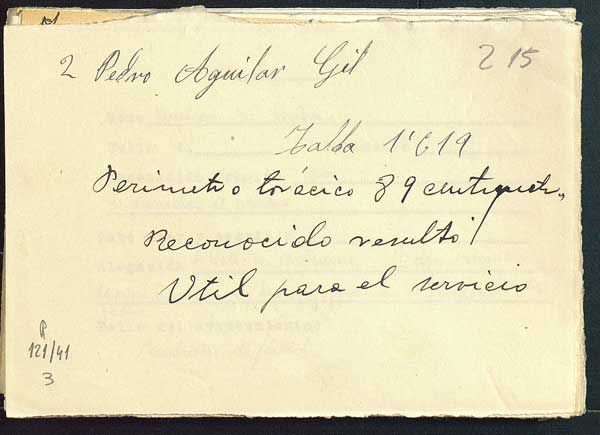 2 Pedro Aguilar Gil
215
Talla 1'619
Perimetro torácico 89 centimetr.,
Reconocido resultó
Util para el servicio
P
121/41
3